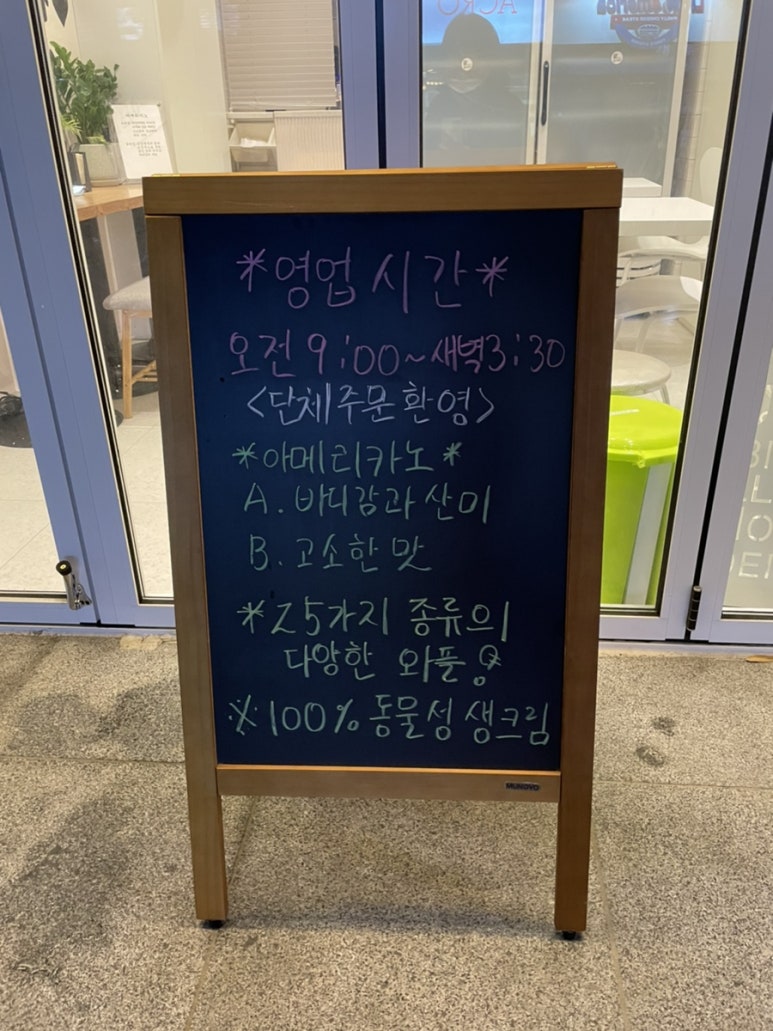 *영업시간*
오전 9:00~새벽3:30
<단체주문환영>
*아메리카노*
A. 바디감과산미
B. 고소한맛
*25가지 종류의
다양한 와플
※100% 동물성 생크림
MUNOVO
ACRO